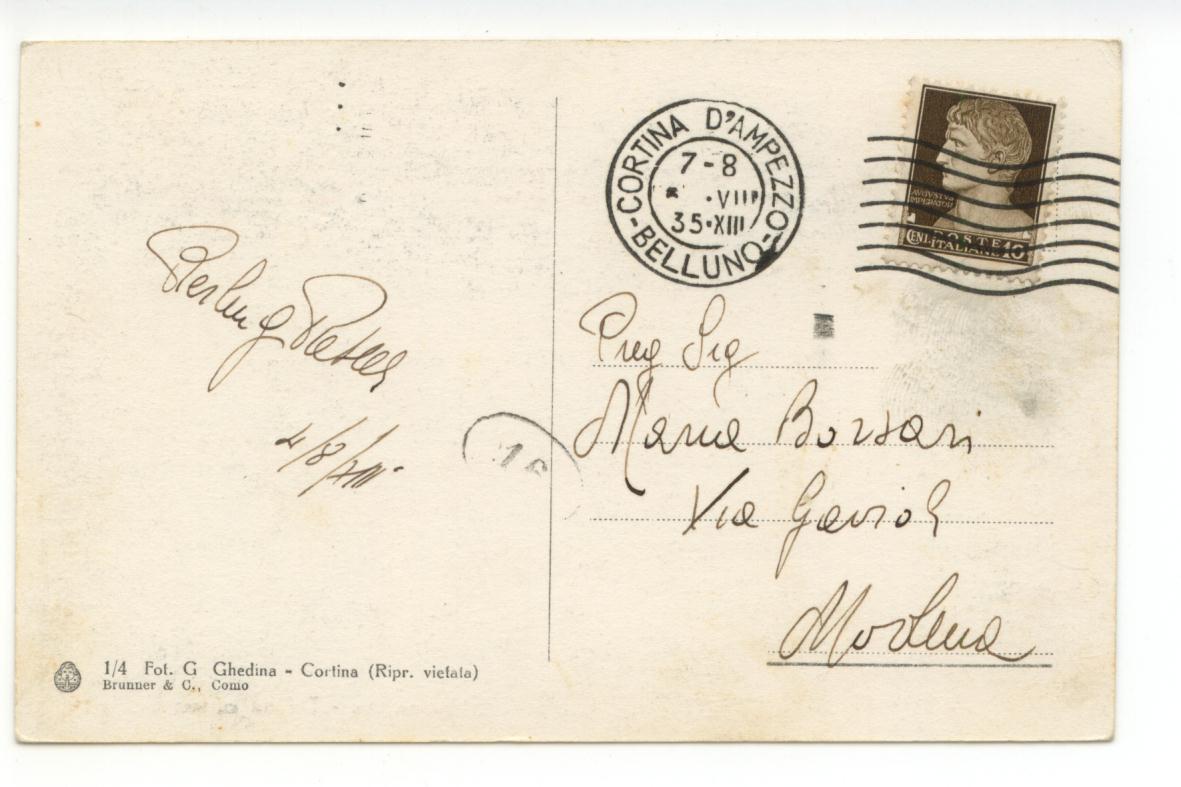 CORTINA D'AMPEZZO
7-8
VIII
35·XIII
-BELLUNO-
AVGVSTVS
IMPERATOR
POSTE
CENT. ITALIANE 10
4/8/XIII
16
Preg Sig
Maria Borsari
Via Gavioli
Modena
1/4 Fot. G Ghedina - Cortina (Ripr. vietata)
Brunner & C., Como